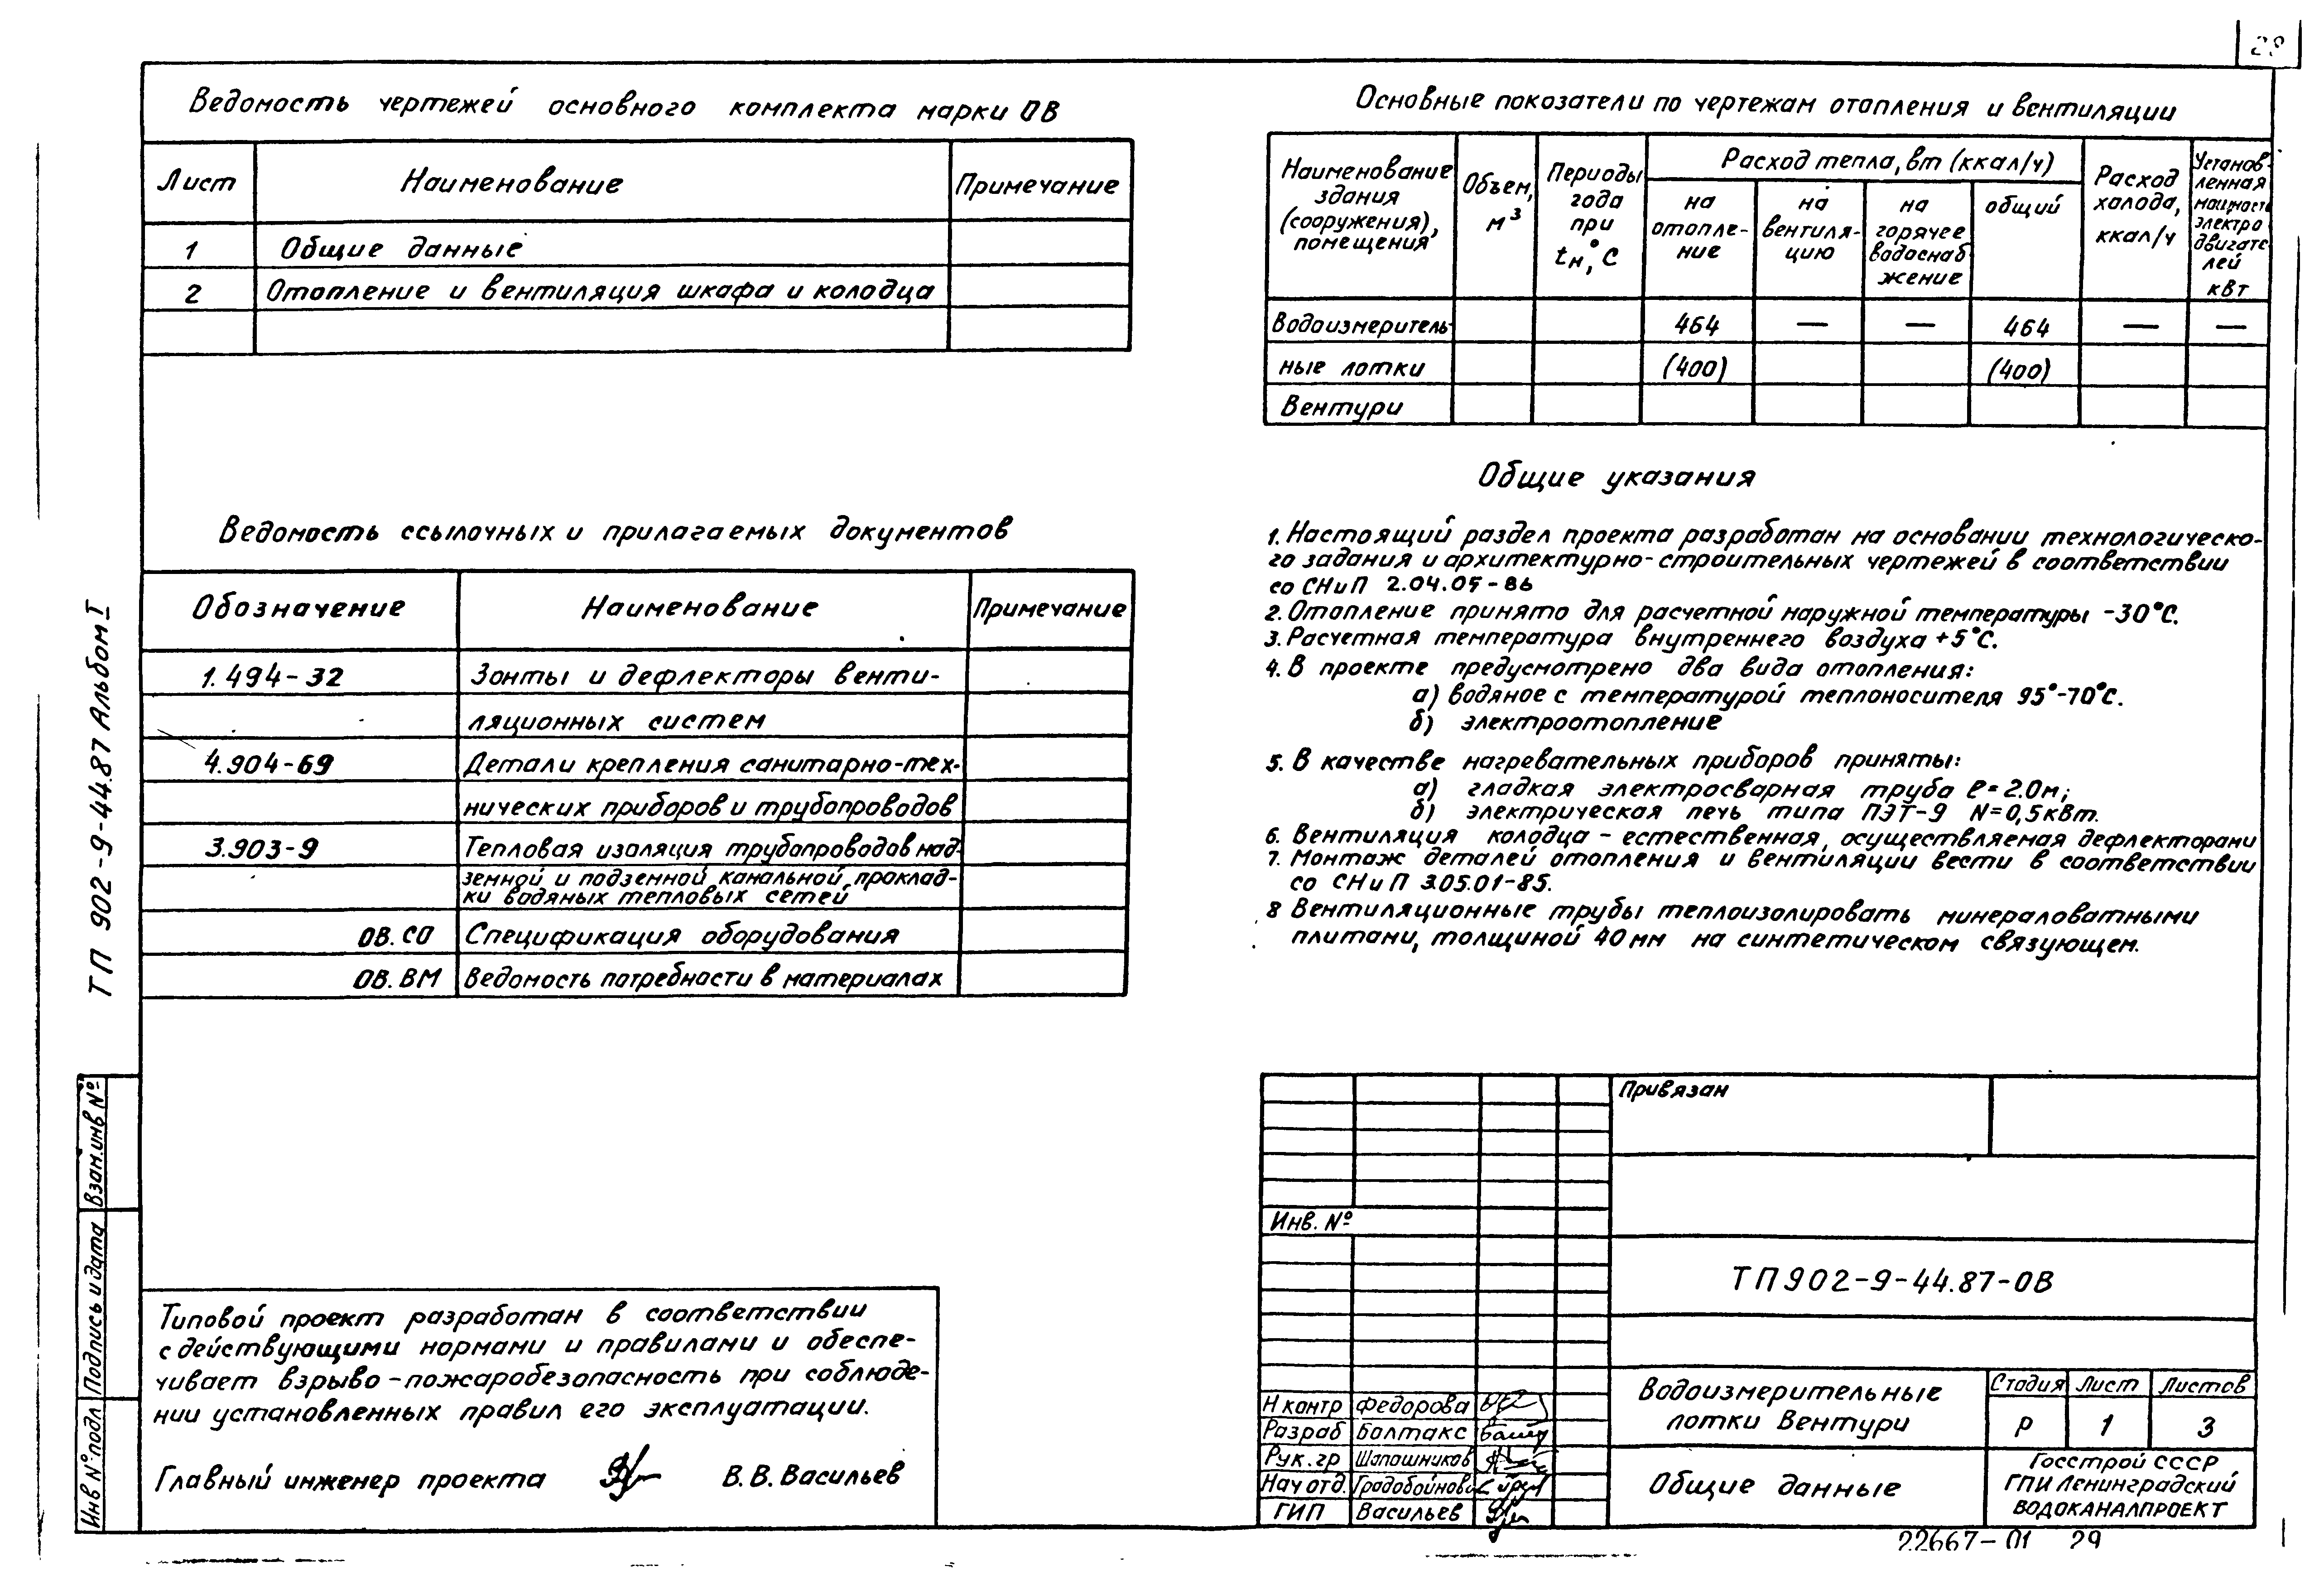 28
Ведомость чертежей основного комплекта марки ОВ
Лист Наименование Примечание
1 Общие данные
2 Отопление и вентиляция шкафа и колодца
Ведомость ссылочных и прилагаемых документов
Обозначение Наименование Примечание
1.494-32 Зонты и дефлекторы венти-
ляционных систем
4.904-69 Детали крепления санитарно-тех-
нических приборов и трубопроводов
3.903-9 Тепловая изоляция трубопроводов над-
земной и подземной канальной проклад-
ки водяных тепловых сетей
ОВ.СО Спецификация оборудования
ОВ.ВМ Ведомость потребности в материалах
Типовой проект разработан в соответствии
с действующими нормами и правилами и обеспе-
чивает взрыво-пожаробезопасность при соблюде-
нии установленных правил его эксплуатации.
Главный инженер проекта В.В.Васильев
ТП 902-9-44.87 Альбом I
Взам.инв №
Подпись и дата
Инв № подл
Основные показатели по чертежам отопления и вентиляции
Наименование
здания
(сооружения),
помещения
Объем,
м³
Периоды
года
при
tн,°С
Расход тепла, вт (ккал/ч)
на
отопле-
ние
на
вентиля-
цию
на
горячее
водоснаб
жение
общий
Расход
холода,
ккал/ч
Установ-
ленная
мощность
электро
двигате
лей
квт
Водоизмеритель- 464 — — 464 — —
ные лотки (400) (400)
Вентури
Общие указания
1. Настоящий раздел проекта разработан на основании технологическо-
го задания и архитектурно-строительных чертежей в соответствии
со СНиП 2.04.05-86
2. Отопление принято для расчетной наружной температуры -30°С.
3. Расчетная температура внутреннего воздуха +5°С.
4. В проекте предусмотрено два вида отопления:
а) водяное с температурой теплоносителя 95°-70°С.
б) электроотопление
5. В качестве нагревательных приборов приняты:
а) гладкая электросварная труба ℓ=2.0м;
б) электрическая печь типа ПЭТ-9 N=0,5кВт.
6. Вентиляция колодца - естественная, осуществляемая дефлекторами
7. Монтаж деталей отопления и вентиляции вести в соответствии
со СНиП 3.05.01-85.
8 Вентиляционные трубы теплоизолировать минераловатными
плитами, толщиной 40мм на синтетическом связующем.
Привязан
Инв. №
ТП902-9-44.87-ОВ
Н контр Федорова
Разраб Балтакс
Рук.гр Шапошников
Нач отд. Градобойнова
ГИП Васильев
Водоизмерительные
лотки Вентури
Стадия Лист Листов
Р 1 3
Общие данные
Госстрой СССР
ГПИ Ленинградский
ВОДОКАНАЛПРОЕКТ
22667-01 29